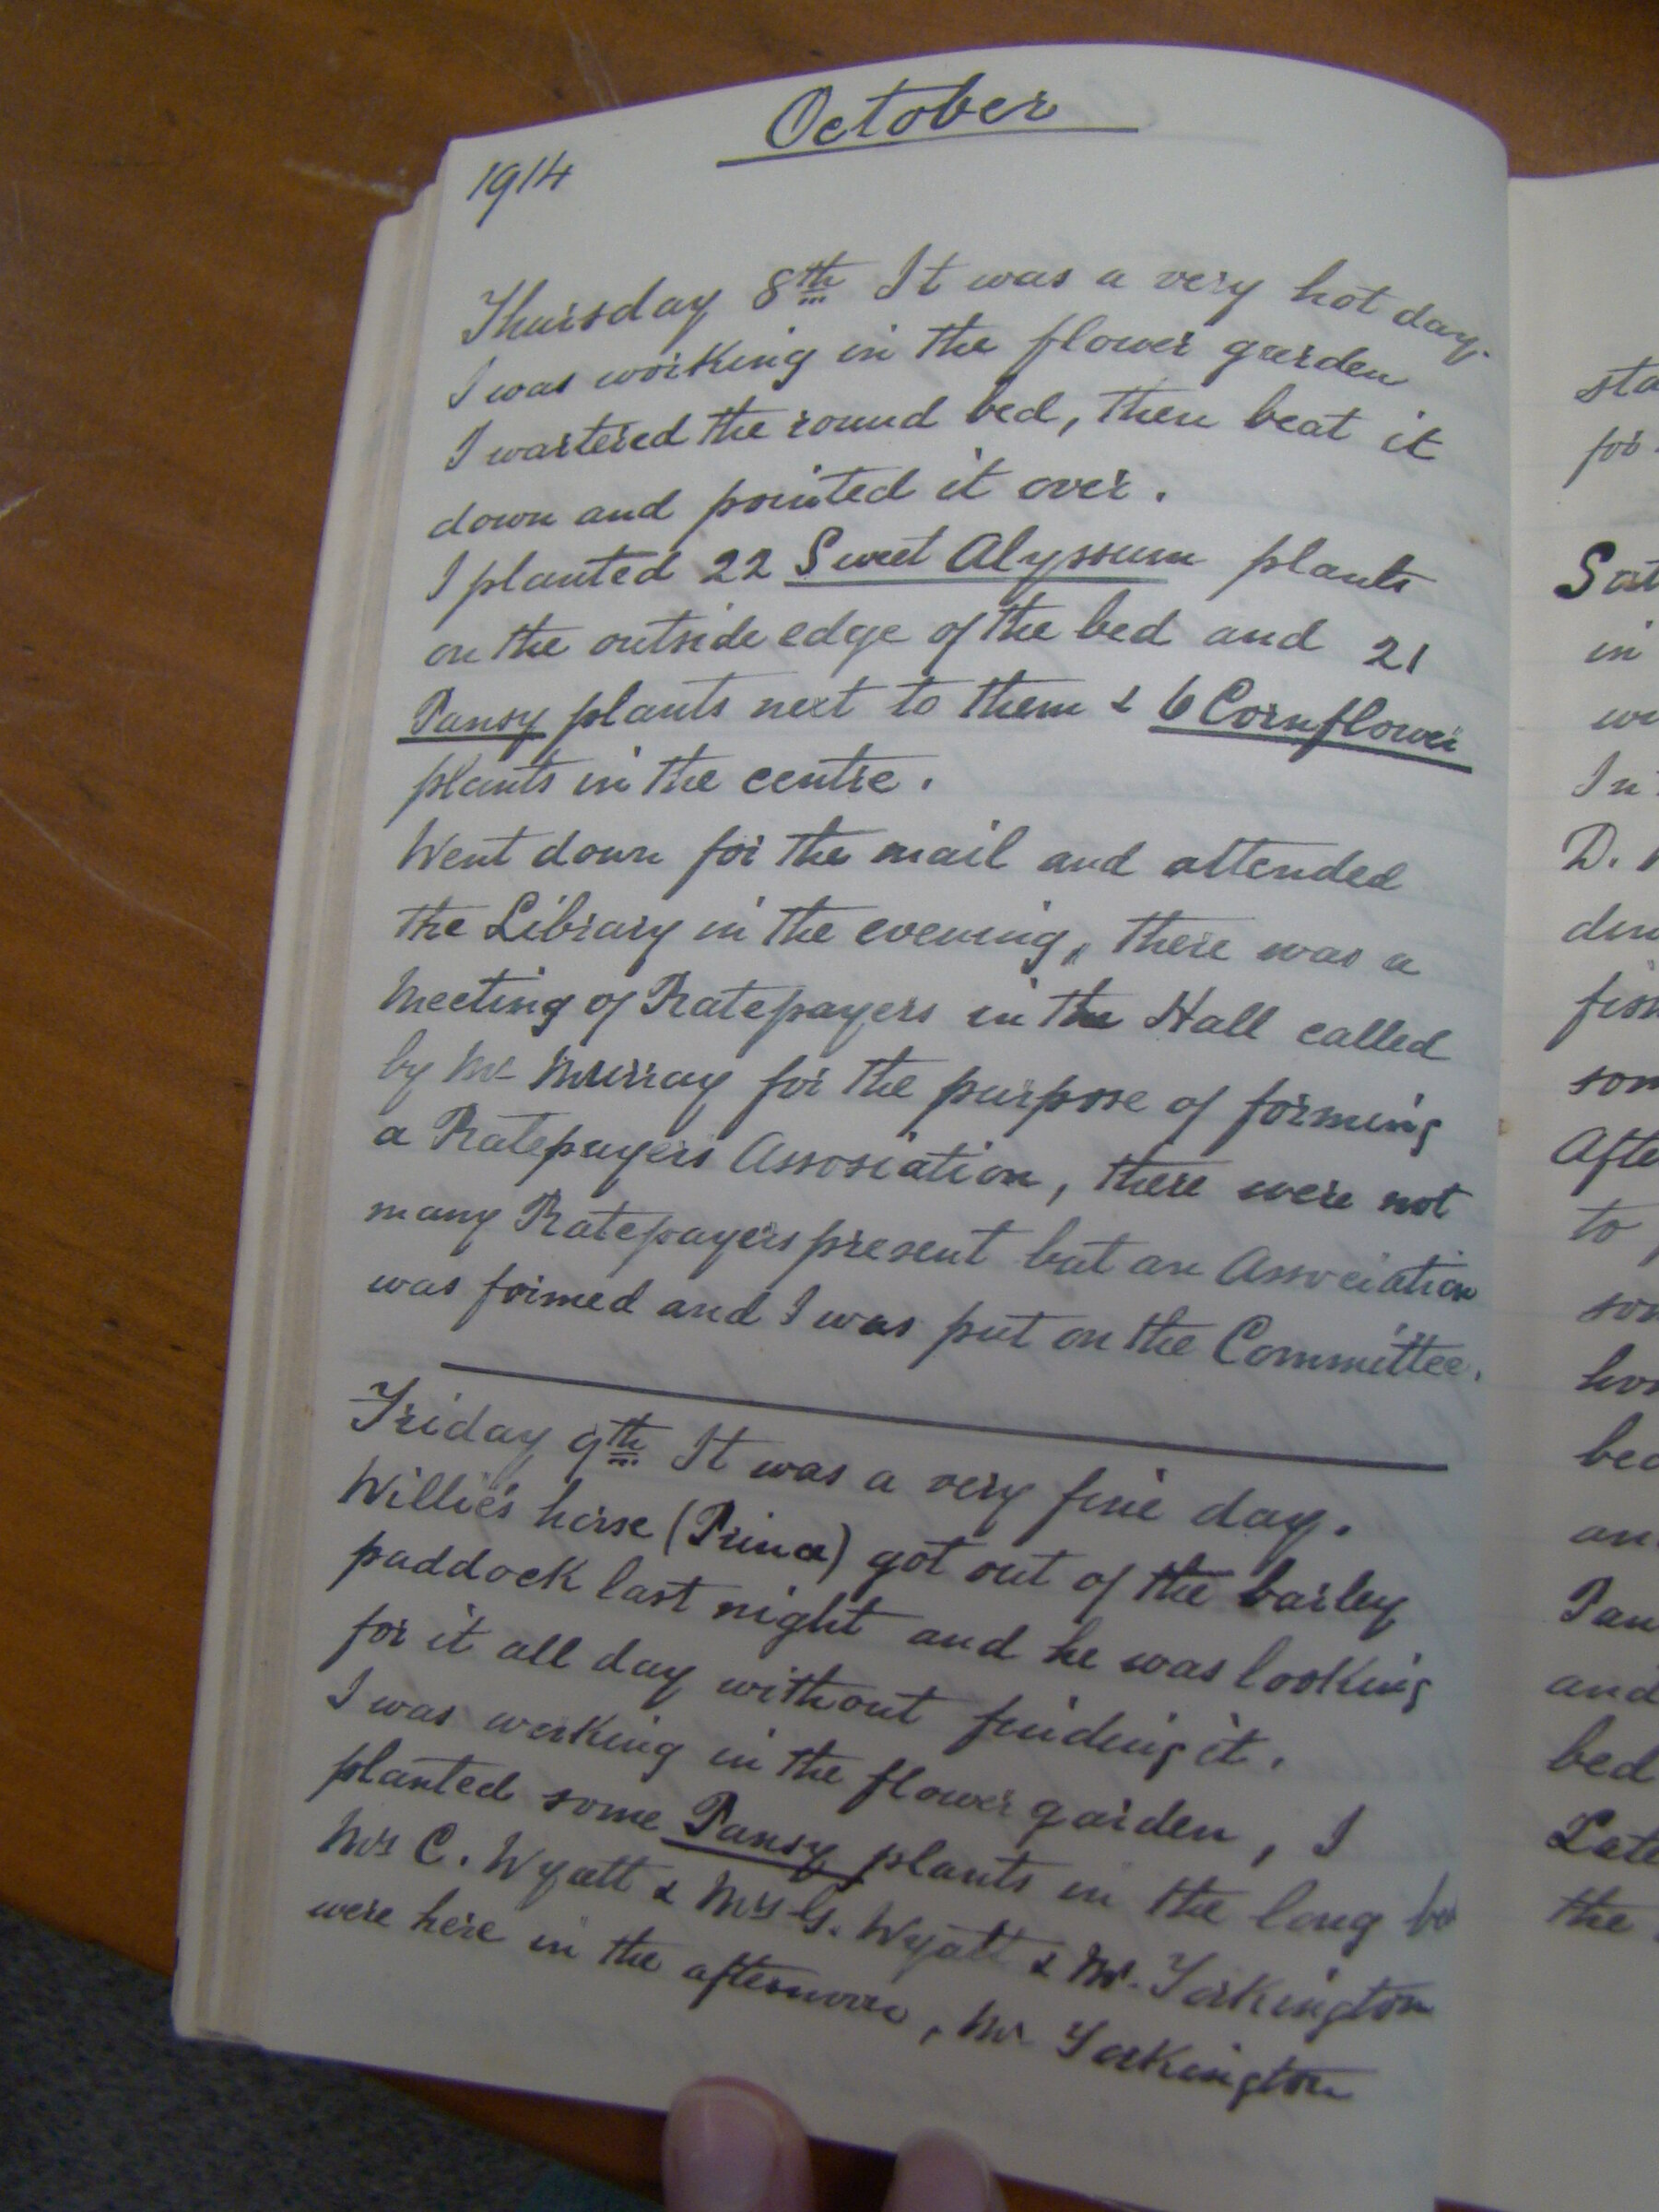 October
1914
Thursday 8th It was a very hot day.
I was working in the flower garden
I wartered the round bed, then beat it
down and pointed it over.
I planted 22 Sweet Alyssum plants
on the outside edge of the bed and 21
Pansy plants next to them & 6 Cornflower
plants in the centre.
Went down for the mail and attended
the Library in the evening, there was a
Meeting of Ratepayers in the Hall called
by Mr Murray for the purpose of forming
a Ratepayers Assosiation, there were not
many Ratepayers present but an Association
was formed and I was put on the Committee.
Friday 9th It was a very fine day.
Willie's horse (Prince) got out of the barley
paddock last night and he was looking
for it all day without finding it.
I was working in the flower garden, I
planted some Pansy plants in the long bed
Mrs C. Wyatt & Mrs G. Wyatt & Mr. Yorkington
were here in the afternoon, Mr Yorkington
sta
for
Sat
in
we
In
D.
din
fish
som
Afte
to
som
hor
bed
an
Pan
and
bed
Late
the